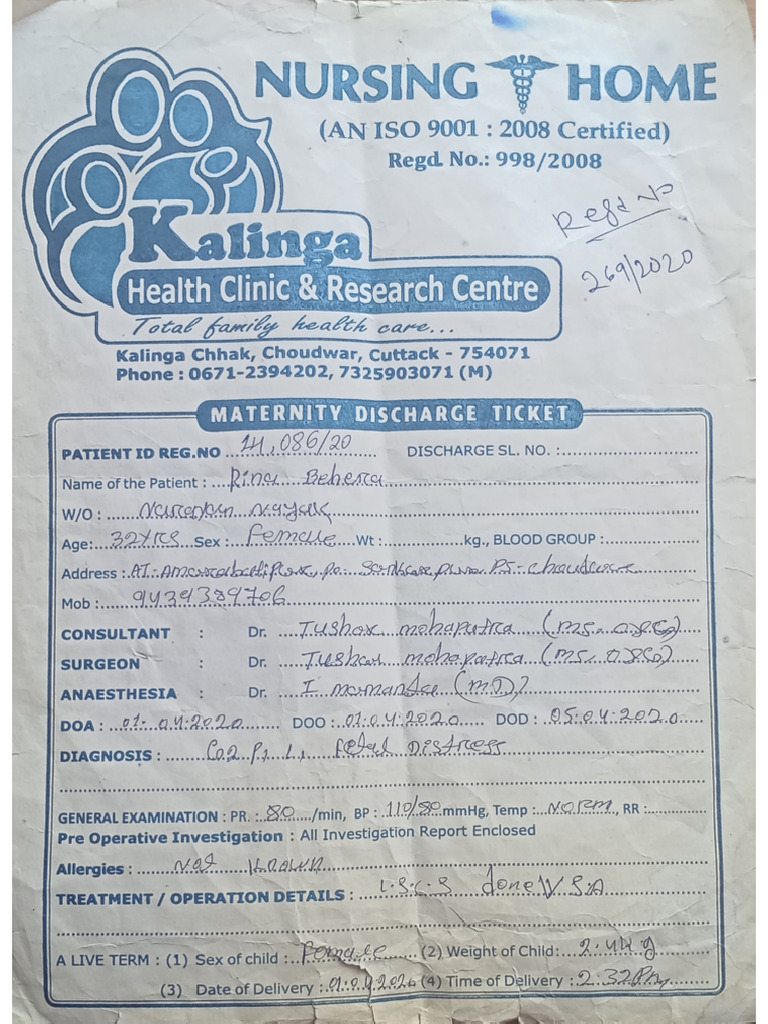 NURSING HOME
(AN ISO 9001 : 2008 Certified)
Regd. No.: 998/2008
Regd No
269/2020
Kalinga
Health Clinic & Research Centre
Total family health care...
Kalinga Chhak, Choudwar, Cuttack - 754071
Phone : 0671-2394202, 7325903071 (M)
MATERNITY DISCHARGE TICKET
PATIENT ID REG.NO 14,086/20 DISCHARGE SL. NO. :
Name of the Patient : Rina Behera
W/O : Nayak
Age: 32yrs Sex : Female Wt : kg., BLOOD GROUP :
Address : At. Po. PS- Choudwar
Mob : 9439389706
CONSULTANT : Dr. Tushar Mohapatra (MS. O&G)
SURGEON : Dr. Tushar Mohapatra (MS. O&G)
ANAESTHESIA : Dr. I (MD)
DOA : 01.04.2020 DOO : 01.04.2020 DOD : 05.04.2020
DIAGNOSIS : G2 P1 L1 Fetal Distress
GENERAL EXAMINATION : PR. 80 /min, BP : 110/80 mmHg, Temp : NORM, RR :
Pre Operative Investigation : All Investigation Report Enclosed
Allergies : Not Known
TREATMENT / OPERATION DETAILS : L.S.C.S done
A LIVE TERM : (1) Sex of child : Female (2) Weight of Child:
(3) Date of Delivery : 01.04.2020 (4) Time of Delivery : 2:32Pm